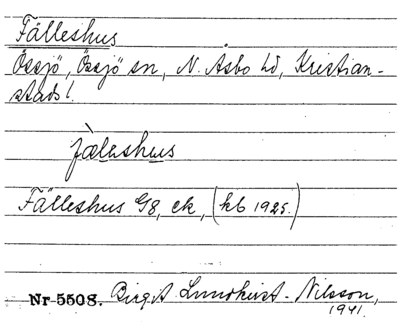 Fälleshus
Össjö, Össjö sn, N. Åsbo hd, Kristian-
stads l.
fæ̀leshus
Fälleshus G8, ek, (kb 1925.)
Nr 5508. Birgit Lundkvist-Nilsson,
1941.